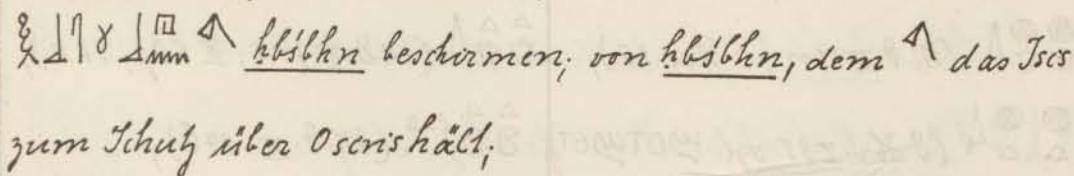 𓎛𓃀𓋴𓍱𓃀𓉔𓈖 ḥbśbhn beschirmen; von ḥbśbhn, dem das Isis
zum Schutz über Osiris hält;